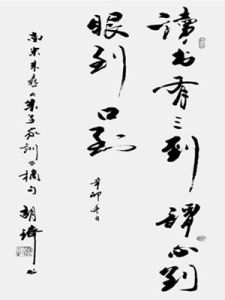 读书有三到 谭心到
眼到 口到
辛卯年日
南宋朱熹《朱子家训》摘句 胡